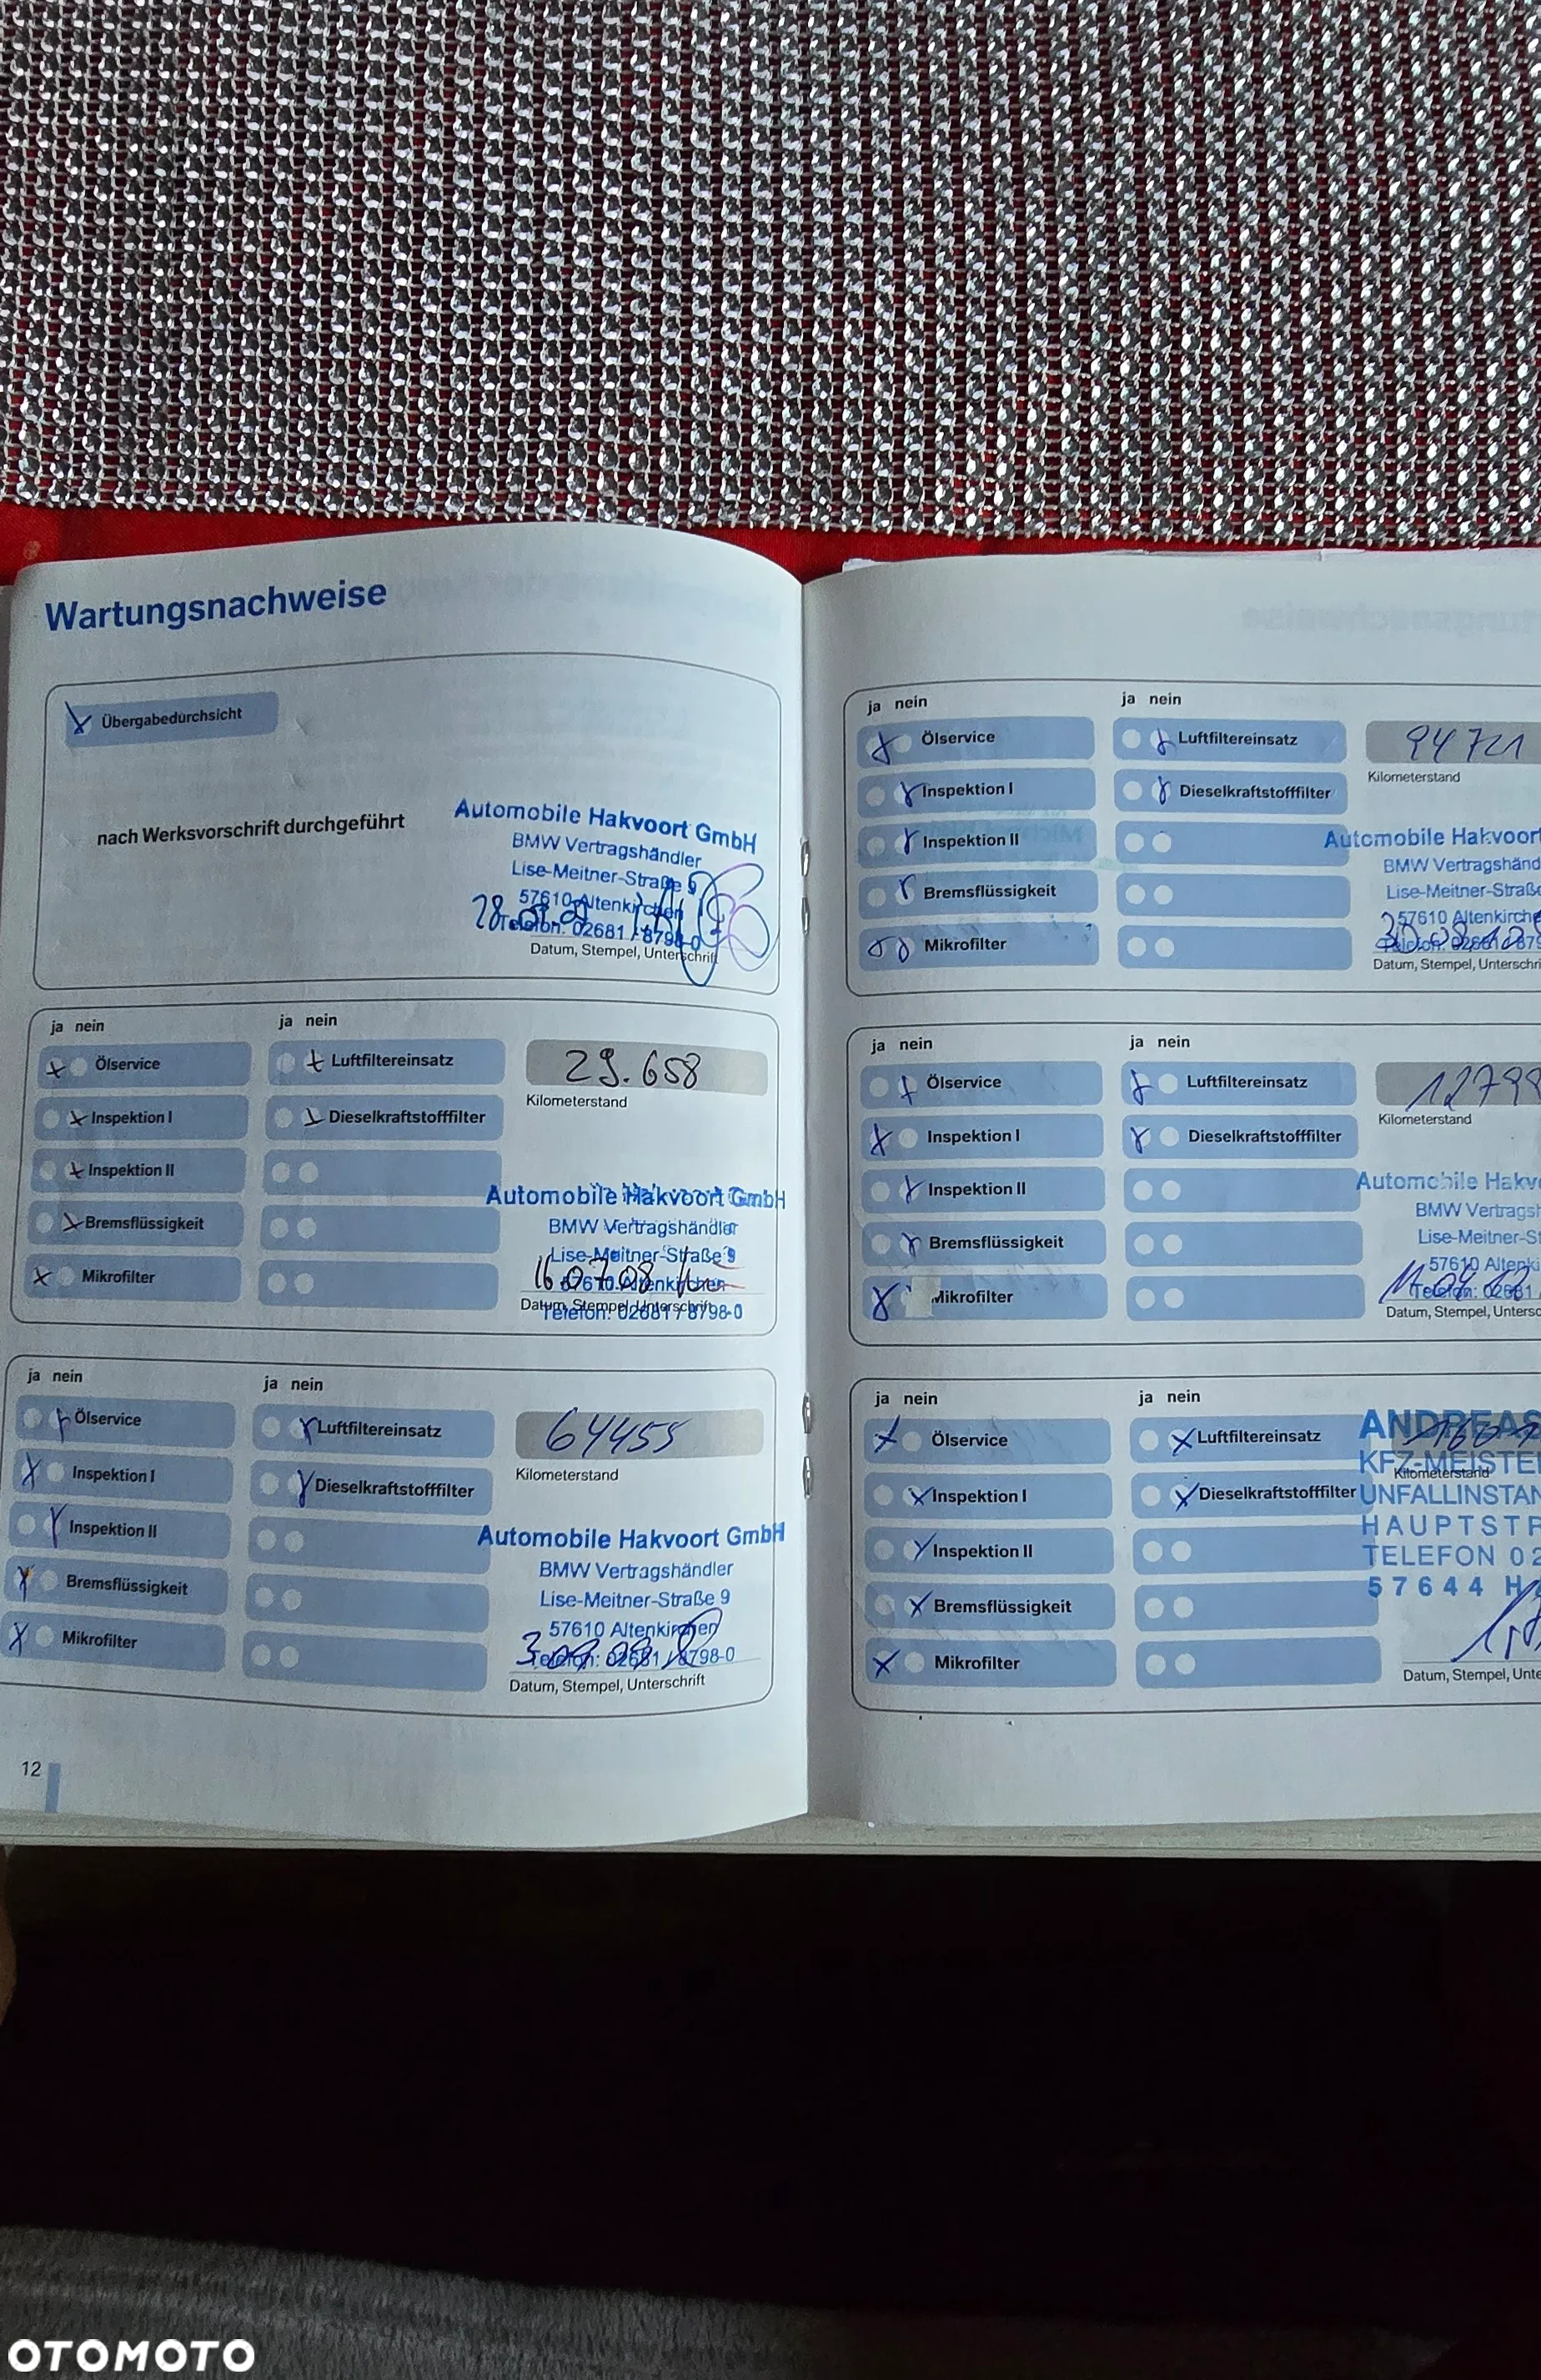 Wartungsnachweise
Übergabedurchsicht
nach Werksvorschrift durchgeführt
Automobile Hakvoort GmbH
BMW Vertragshändler
Lise-Meitner-Straße 9
57610 Altenkirchen
Telefon: 02681 / 8798-0
Datum, Stempel, Unterschrift
ja nein
ja nein
Ölservice
Luftfiltereinsatz
29.658
Kilometerstand
Inspektion I
Dieselkraftstofffilter
Inspektion II
Bremsflüssigkeit
Mikrofilter
Automobile Hakvoort GmbH
BMW Vertragshändler
Lise-Meitner-Straße 9
57610 Altenkirchen
16.07.08
Datum, Stempel, Unterschrift
Telefon: 02681 / 8798-0
ja nein
ja nein
Ölservice
Luftfiltereinsatz
64455
Kilometerstand
Inspektion I
Dieselkraftstofffilter
Inspektion II
Bremsflüssigkeit
Mikrofilter
Automobile Hakvoort GmbH
BMW Vertragshändler
Lise-Meitner-Straße 9
57610 Altenkirchen
Telefon: 02681 / 8798-0
Datum, Stempel, Unterschrift
12
ja nein
ja nein
Ölservice
Luftfiltereinsatz
94721
Kilometerstand
Inspektion I
Dieselkraftstofffilter
Inspektion II
Bremsflüssigkeit
Mikrofilter
Automobile Hakvoort
BMW Vertragshänd
Lise-Meitner-Straße
57610 Altenkirche
Telefon: 02681 / 879
Datum, Stempel, Unterschri
ja nein
ja nein
Ölservice
Luftfiltereinsatz
12799
Kilometerstand
Inspektion I
Dieselkraftstofffilter
Inspektion II
Bremsflüssigkeit
Mikrofilter
Automobile Hakv
BMW Vertragsh
Lise-Meitner-St
57610 Altenki
Telefon: 02681 /
Datum, Stempel, Untersc
ja nein
ja nein
Ölservice
Luftfiltereinsatz
Kilometerstand
Inspektion I
Dieselkraftstofffilter
Inspektion II
Bremsflüssigkeit
Mikrofilter
ANDREAS
KFZ-MEISTE
UNFALLINSTAN
HAUPTSTR
TELEFON 02
57644 H
Datum, Stempel, Unte
OTOMOTO